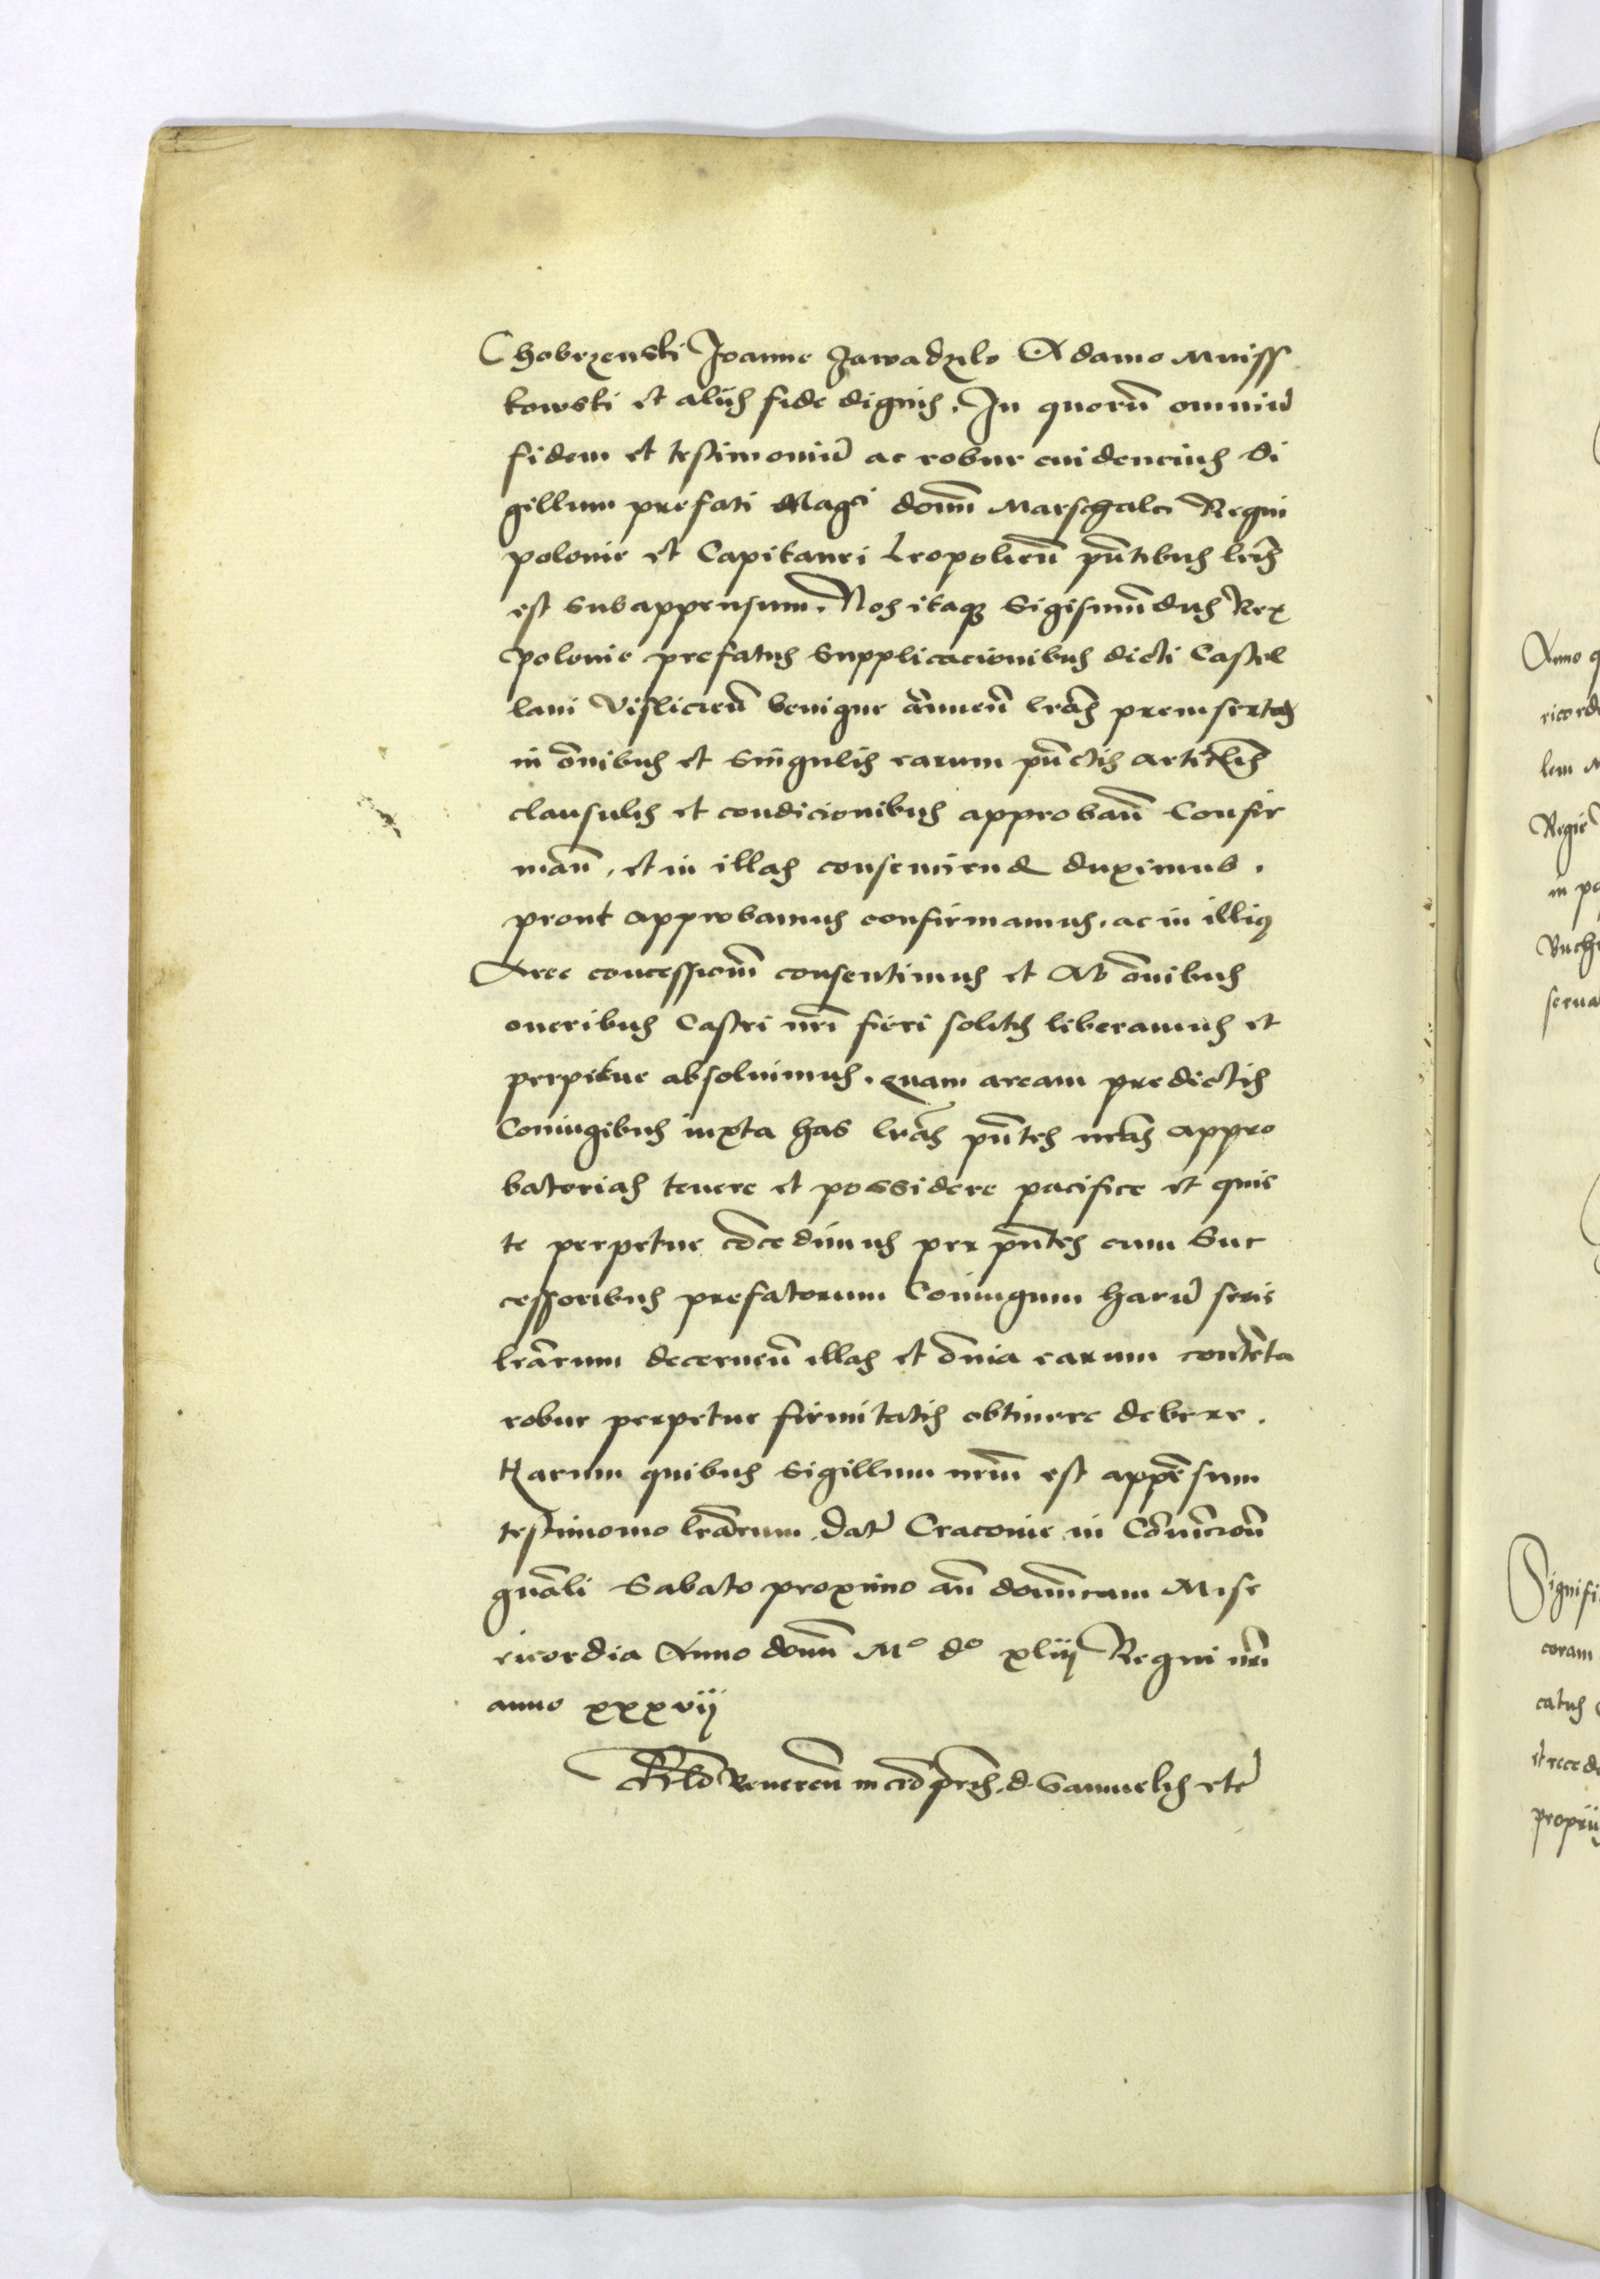 Chobrzenski Joanne Zawadzko Adamo Mniss
kowski et alijs fide dignis. In quorũ omniũ
fidem et testimoniũ ac robur euidencius Si
gillum prefati Magci domĩ Marschalci Regni
polonie et Capitanei Leopolieñ pñtibus lrĩs
est subappensum. Nos itaq3 Sigismũdus Rex
polonie prefatus Supplicacionibus dicti Castel
lani Vislicieñ benigne ãnueñ lrãs preinsertas
in õnibus et singulis earum pũctis articlis
clausulis et condicionibus approbañ Confir
mañ, et in illas consenciend duximus.
prout approbamus confirmamus, ac in illiq
Aree concessionẽ consentimus et Ab õnibus
oneribus Castri nrĩ fieri solitis liberamus et
perpetue absoluimus, quam aream predictis
Coniugibus iuxta has lrãs pñtes nrãs appro
batorias tenere et possidere pacifice et quie
te perpetue cõcedimus per pñtes cum Suc
cessoribus prefatorum Coniugum harũ serie
lrãrum decerneñ illas et õnia earum contẽta
robur perpetue firmitatis obtinere debere.
Harum quibus Sigillum nrũm est appẽsum
testimonio lrãrum. dat̃ Cracouie in Cõuẽcioñ
gnãli Sabato proximo añ domĩcam Mise
ricordia Anno domĩ Mº dº xliij Regni nrĩ
anno xxxvij
Rlõ Reuereñ in crõ pris d. Samuelis etc̃